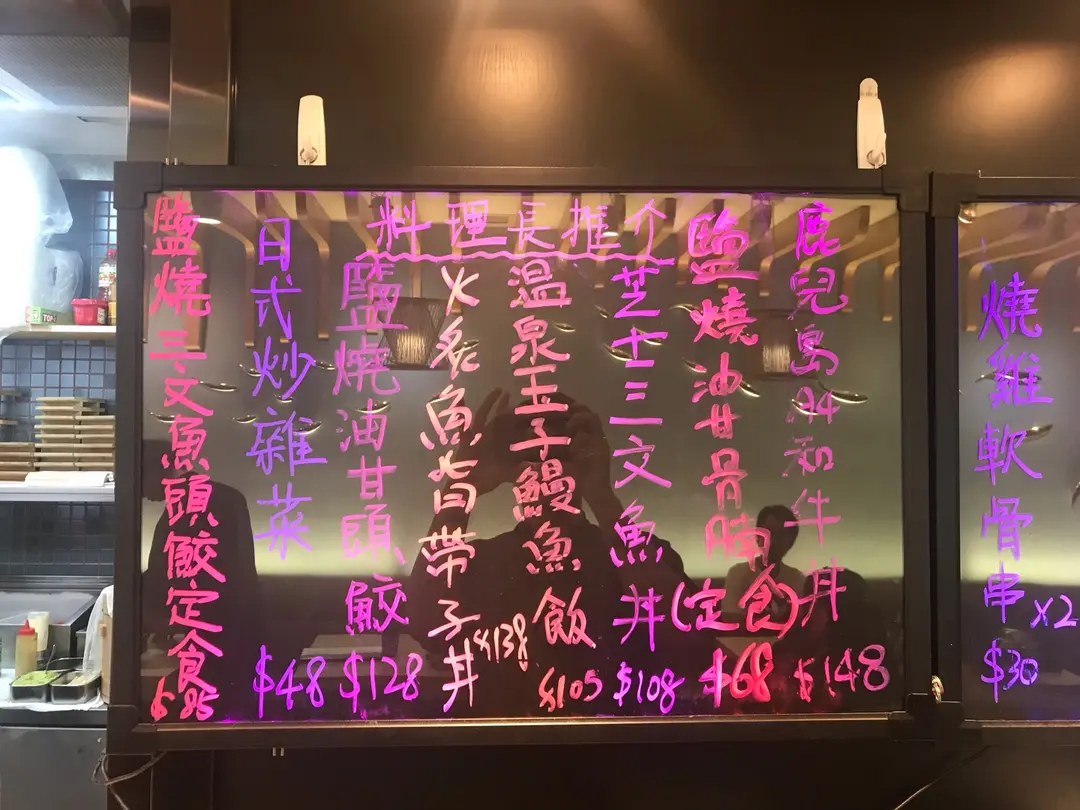 料理長推介
鹿兒島A4和牛丼 $148
鹽燒油甘骨腩(定食) $68
芝士三文魚丼 $108
温泉玉子鰻魚飯 $105
火炙魚背帶子丼 $138
鹽燒油甘頭鮫 $128
日式炒雜菜 $48
鹽燒三文魚頭鮫定食 $85
燒雞軟骨串 x2 $30